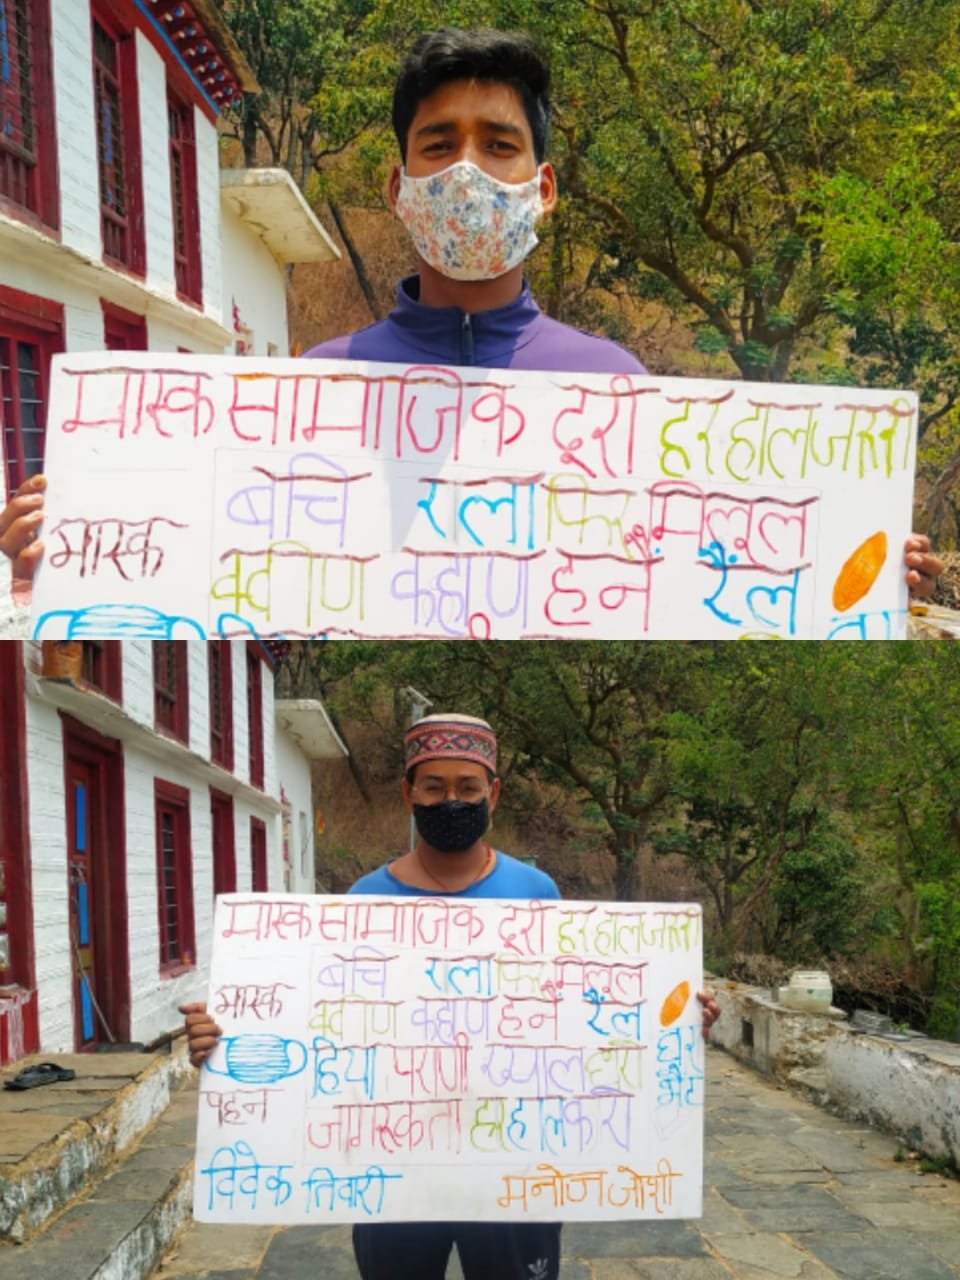 मास्क सामाजिक दूरी हर हाल जरुरी
बचि रला फिर मिलूल
मास्क
क्वीण कहाण हनै रैल
मास्क सामाजिक दूरी हर हाल जरुरी
बचि रला फिर मिलूल
मास्क
क्वीण कहाण हनै रैल
हिया पराणी ख्याल धरो
घर
भैट
पहन
जागरुकता हर हाल करो
विवेक तिवारी
मनोज जोशी